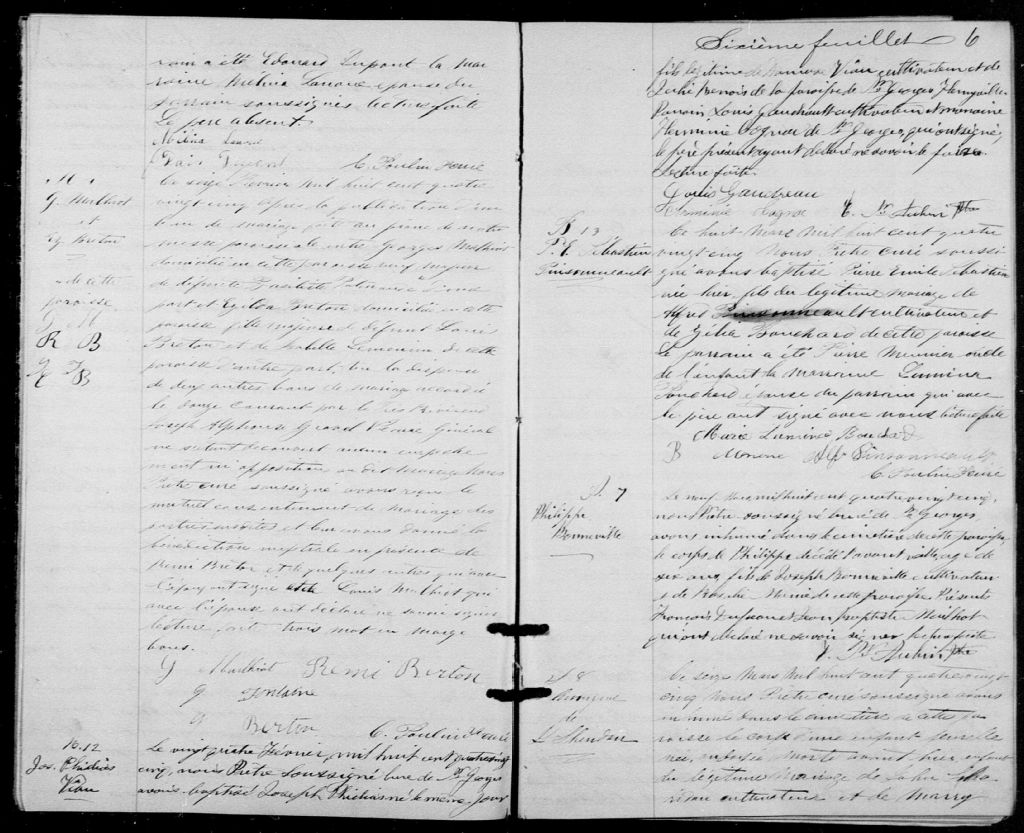 rain a été Edouard Dupont la mar
raine Melina épouse du
parrain soussignés lecture faite
Le père absent.
Melina
C. Poulin Pcuré
M.
G. Mulhiot
et
Breton
de cette
paroisse
Ce seize Fevrier mil huit cent quatre
vingt cinq après la publication d'un
ban de mariage fait au prône de notre
messe paroissiale entre Georges Mulhiot
domicilié en cette paroisse fils majeur
de défunte
part et Breton domiciliée en cette
paroisse fille majeure de défunt Louis
Breton et de de cette
paroisse d'autre part; vu la dispense
de deux autres bans de mariage accordée
le douze courant par le Très Révérend
Joseph Alphonse Gravel Vicaire Général
ne s'étant découvert aucun empêche
ment ni opposition au dit mariage Nous
Prêtre curé soussigné avons reçu le
mutuel consentement de mariage des
parties susdites et leur avons donné la
bénédiction nuptiale en présence de
Remi Breton et de quelques autres qui avec
l'époux ont signé et de Louis Mulhiot qui
avec l'épouse ont déclaré ne savoir signer
lecture faite trois mot en marge
bons.
G M
R B
G F
B
G Mulhiot Remi Berton
G Fontaine
G Berton C. Poulin Pcuré
B. 12
Jos. Phidias
Viau
Le vingt quatre Fevrier, mil huit cent quatre vingt
cinq, nous Prêtre soussigné curé de St Georges
avons baptisé Joseph Phidias né le même jour
Sixième feuillet 6
fils légitime de Viau cultivateur et de
Benois de la paroisse de St Georges
Parrain, Louis Gaudreault cultivateur et marraine
Herminie Cognac de St Georges, qui ont signé,
le père présent ayant déclaré ne savoir le faire.
Lecture faite.
Louis Gaudreau
Herminie Cognac C. St Aubin Ptre
B 13
P. E. Sébastien
Pinsonneault
Ce huit Mars mil huit cent quatre
vingt cinq Nous Prêtre curé soussi
gné avons baptisé Pierre Emile Sébastien
née hier, fils du légitime mariage de
Alfred Pinsonneault cultivateur et
de Zélia Bouchard de cette paroisse
Le parrain a été Pierre Meunier oncle
de l'enfant la marraine Lumina
Bouchard épouse du parrain qui avec
le père ont signé avec nous lecture faite
Marie Lumina Bouchard
B Monene Alf Pinsonneault
C. Poulin Pcuré
S. 7
Philippe
Bonneville
Le neuf Mars mil huit cent quatre vingt cinq,
nous Prêtre soussigné curé de St Georges,
avons inhumé dans le cimetière de cette paroisse
le corps de Philippe décédé l'avant veille, agé de
six ans, fils de Joseph Bonneville cultivateur
de cette paroisse. Présents
François Dupont et Jean Baptiste Mulhot
qui ont déclaré ne savoir signer lecture faite
C. St Aubin Ptre
S 8
Anonyme
de
Sheridan
Ce seize Mars mil huit cent quatre vingt
cinq Nous Prêtre curé soussigné avons
inhumé dans le cimetière de cette pa
roisse le corps d'une enfant jumelle
née, morte avant hier, enfant
du légitime mariage de John She
ridan cultivateur et de Marry